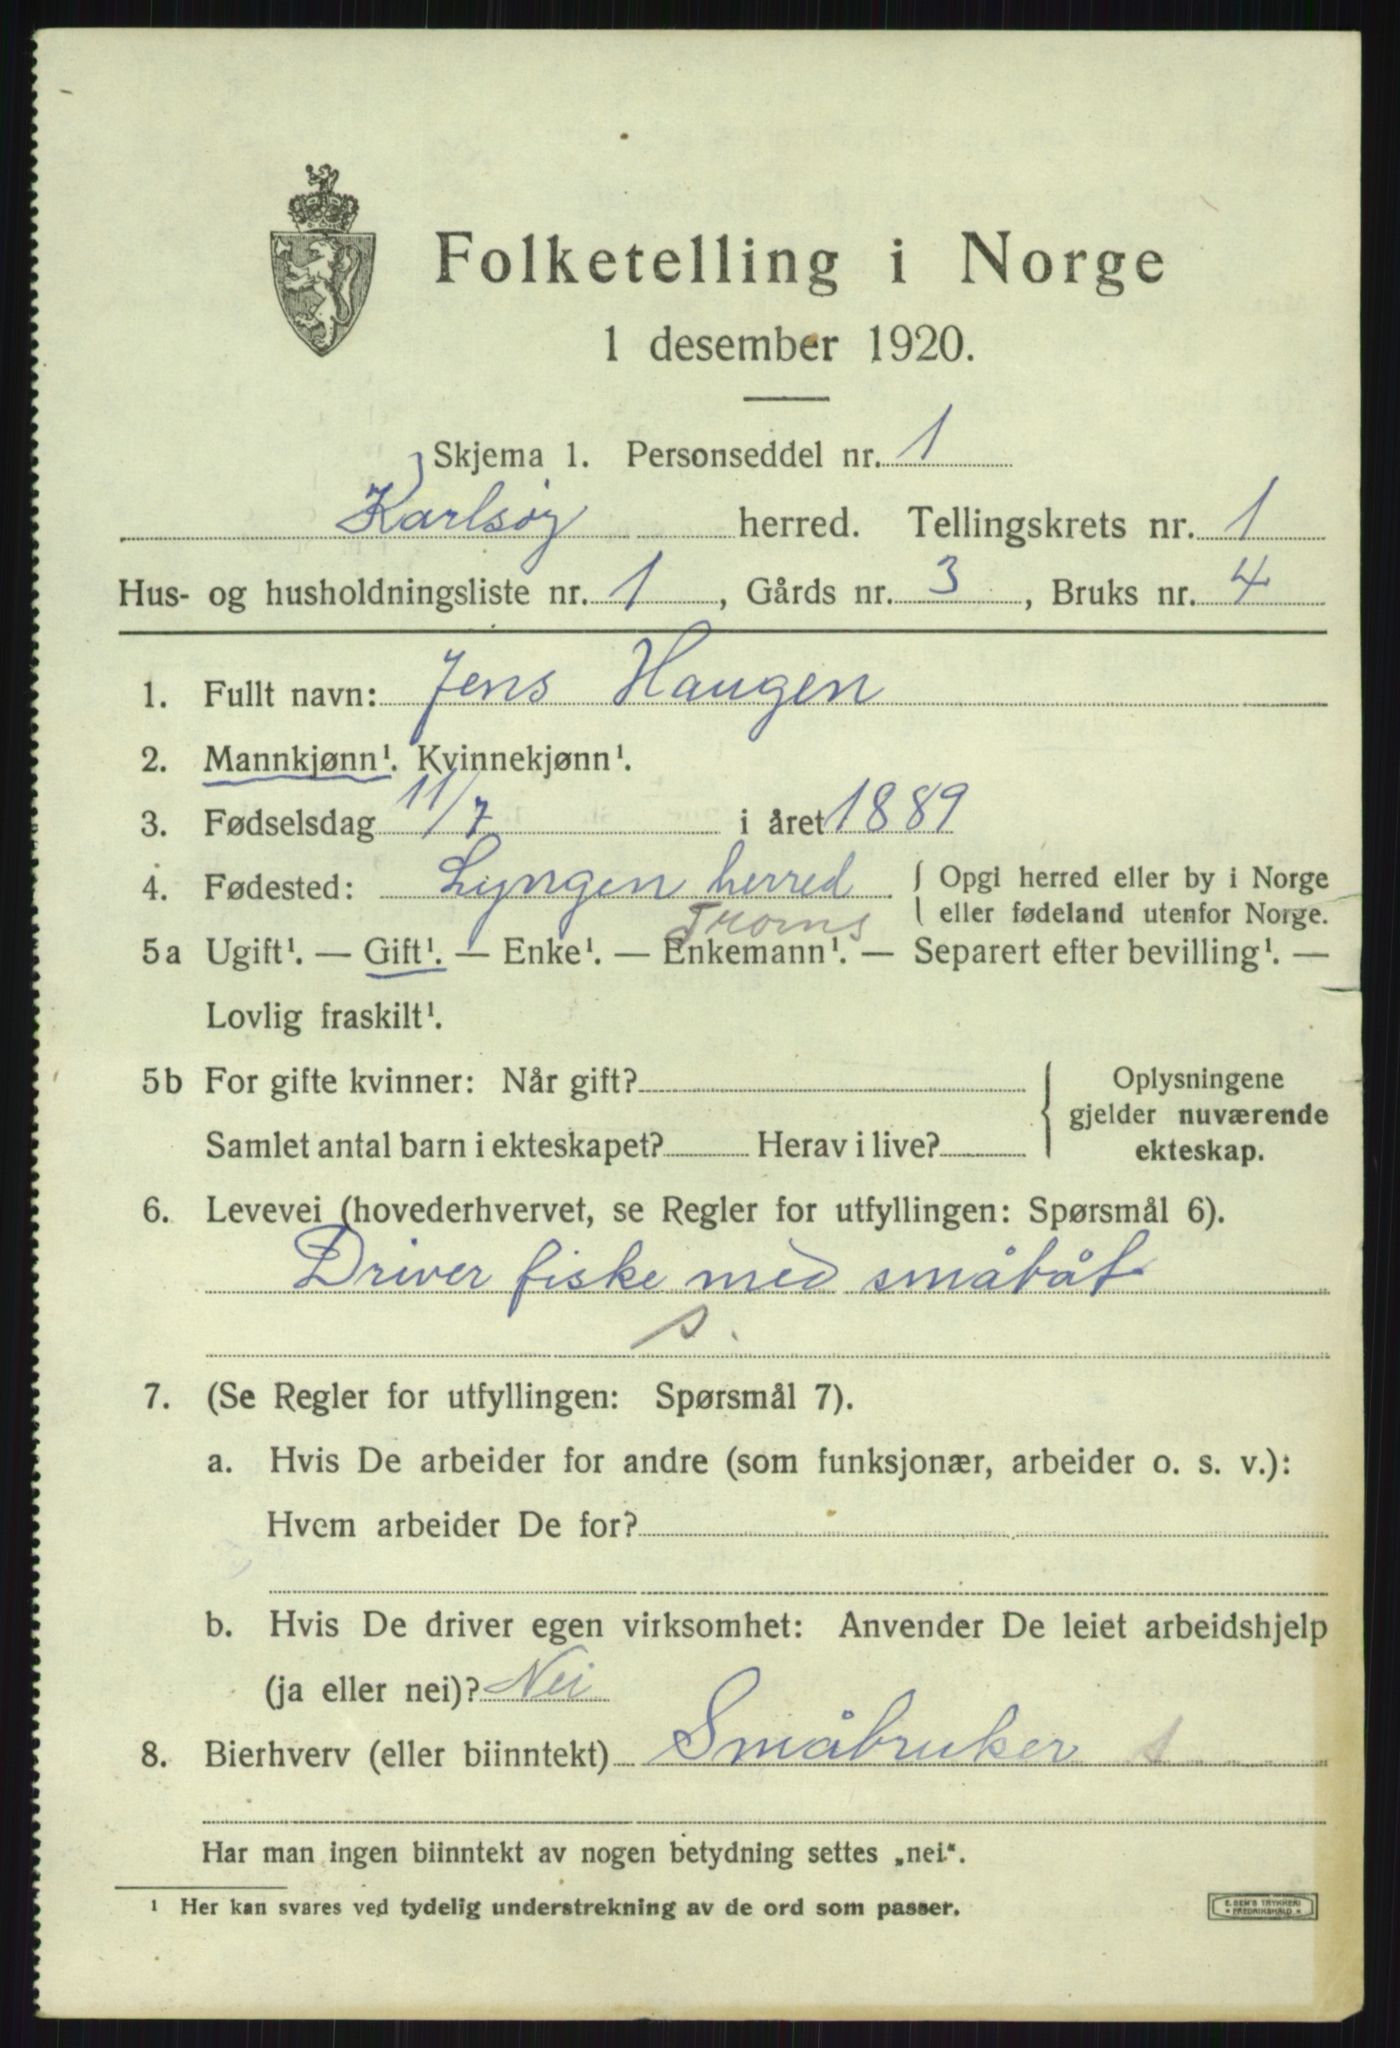 Folketelling i Norge
1 desember 1920.
Skjema 1. Personseddel nr. 1
Karlsøy herred. Tellingskrets nr. 1
Hus- og husholdningsliste nr. 1, Gårds nr. 3, Bruks nr. 4
1. Fullt navn: Jens Haugen
2. Mannkjønn¹. Kvinnekjønn¹.
3. Fødselsdag 11/7 i året 1889
4. Fødested: Lyngen herred { Opgi herred eller by i Norge
eller fødeland utenfor Norge.
Troms
5a Ugift¹. — Gift¹. — Enke¹. — Enkemann¹. — Separert efter bevilling¹. —
Lovlig fraskilt¹.
5b For gifte kvinner: Når gift? { Oplysningene
gjelder nuværende
Samlet antal barn i ekteskapet? Herav i live? ekteskap.
6. Levevei (hovederhvervet, se Regler for utfyllingen: Spørsmål 6).
Driver fiske med småbåt
s.
7. (Se Regler for utfyllingen: Spørsmål 7).
a. Hvis De arbeider for andre (som funksjonær, arbeider o. s. v.):
Hvem arbeider De for?
b. Hvis De driver egen virksomhet: Anvender De leiet arbeidshjelp
(ja eller nei)? Nei
8. Bierhverv (eller biinntekt) Småbruker s
Har man ingen biinntekt av nogen betydning settes „nei“.
¹ Her kan svares ved tydelig understrekning av de ord som passer.
E. SEM'S TRYKKERI
* FREDRIKSHALD *